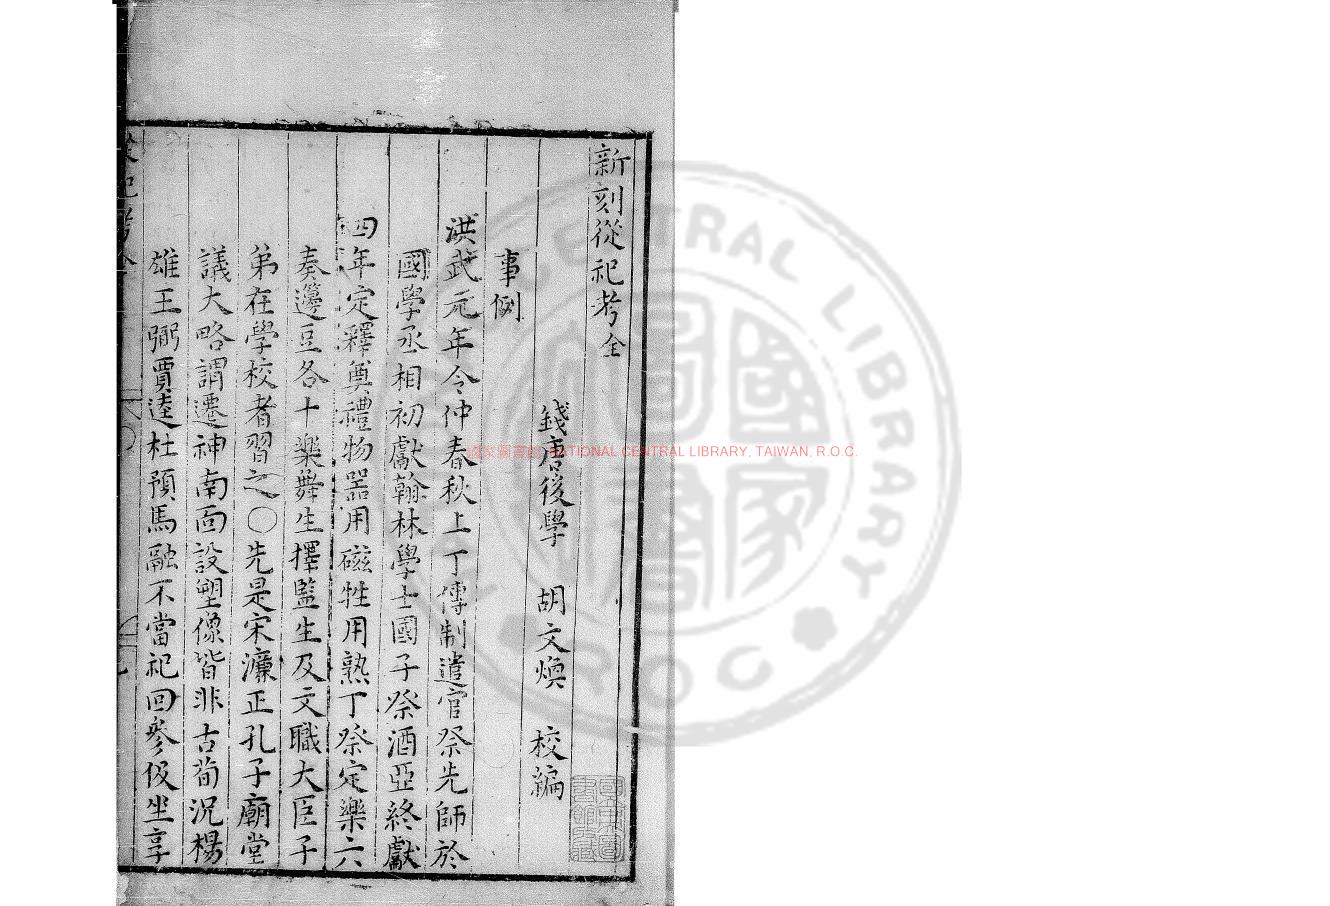 新刻從祀考全
錢唐後學　胡文煥　校編
事例
洪武元年令仲春秋上丁傳制遣官祭先師於
國學丞相初獻翰林學士國子祭酒亞終獻
四年定釋奠禮物器用磁牲用熟丁祭定樂六
奏籩豆各十樂舞生擇監生及文職大臣子
弟在學校者習之○先是宋濂正孔子廟堂
議大略謂遷神南面設塑像皆非古荀況楊
雄王弼賈逵杜預馬融不當祀回參伋坐享
國家圖書館 NATIONAL CENTRAL LIBRARY, TAIWAN, R.O.C.
CENTRAL LIBRARY
R O C
國家圖書館